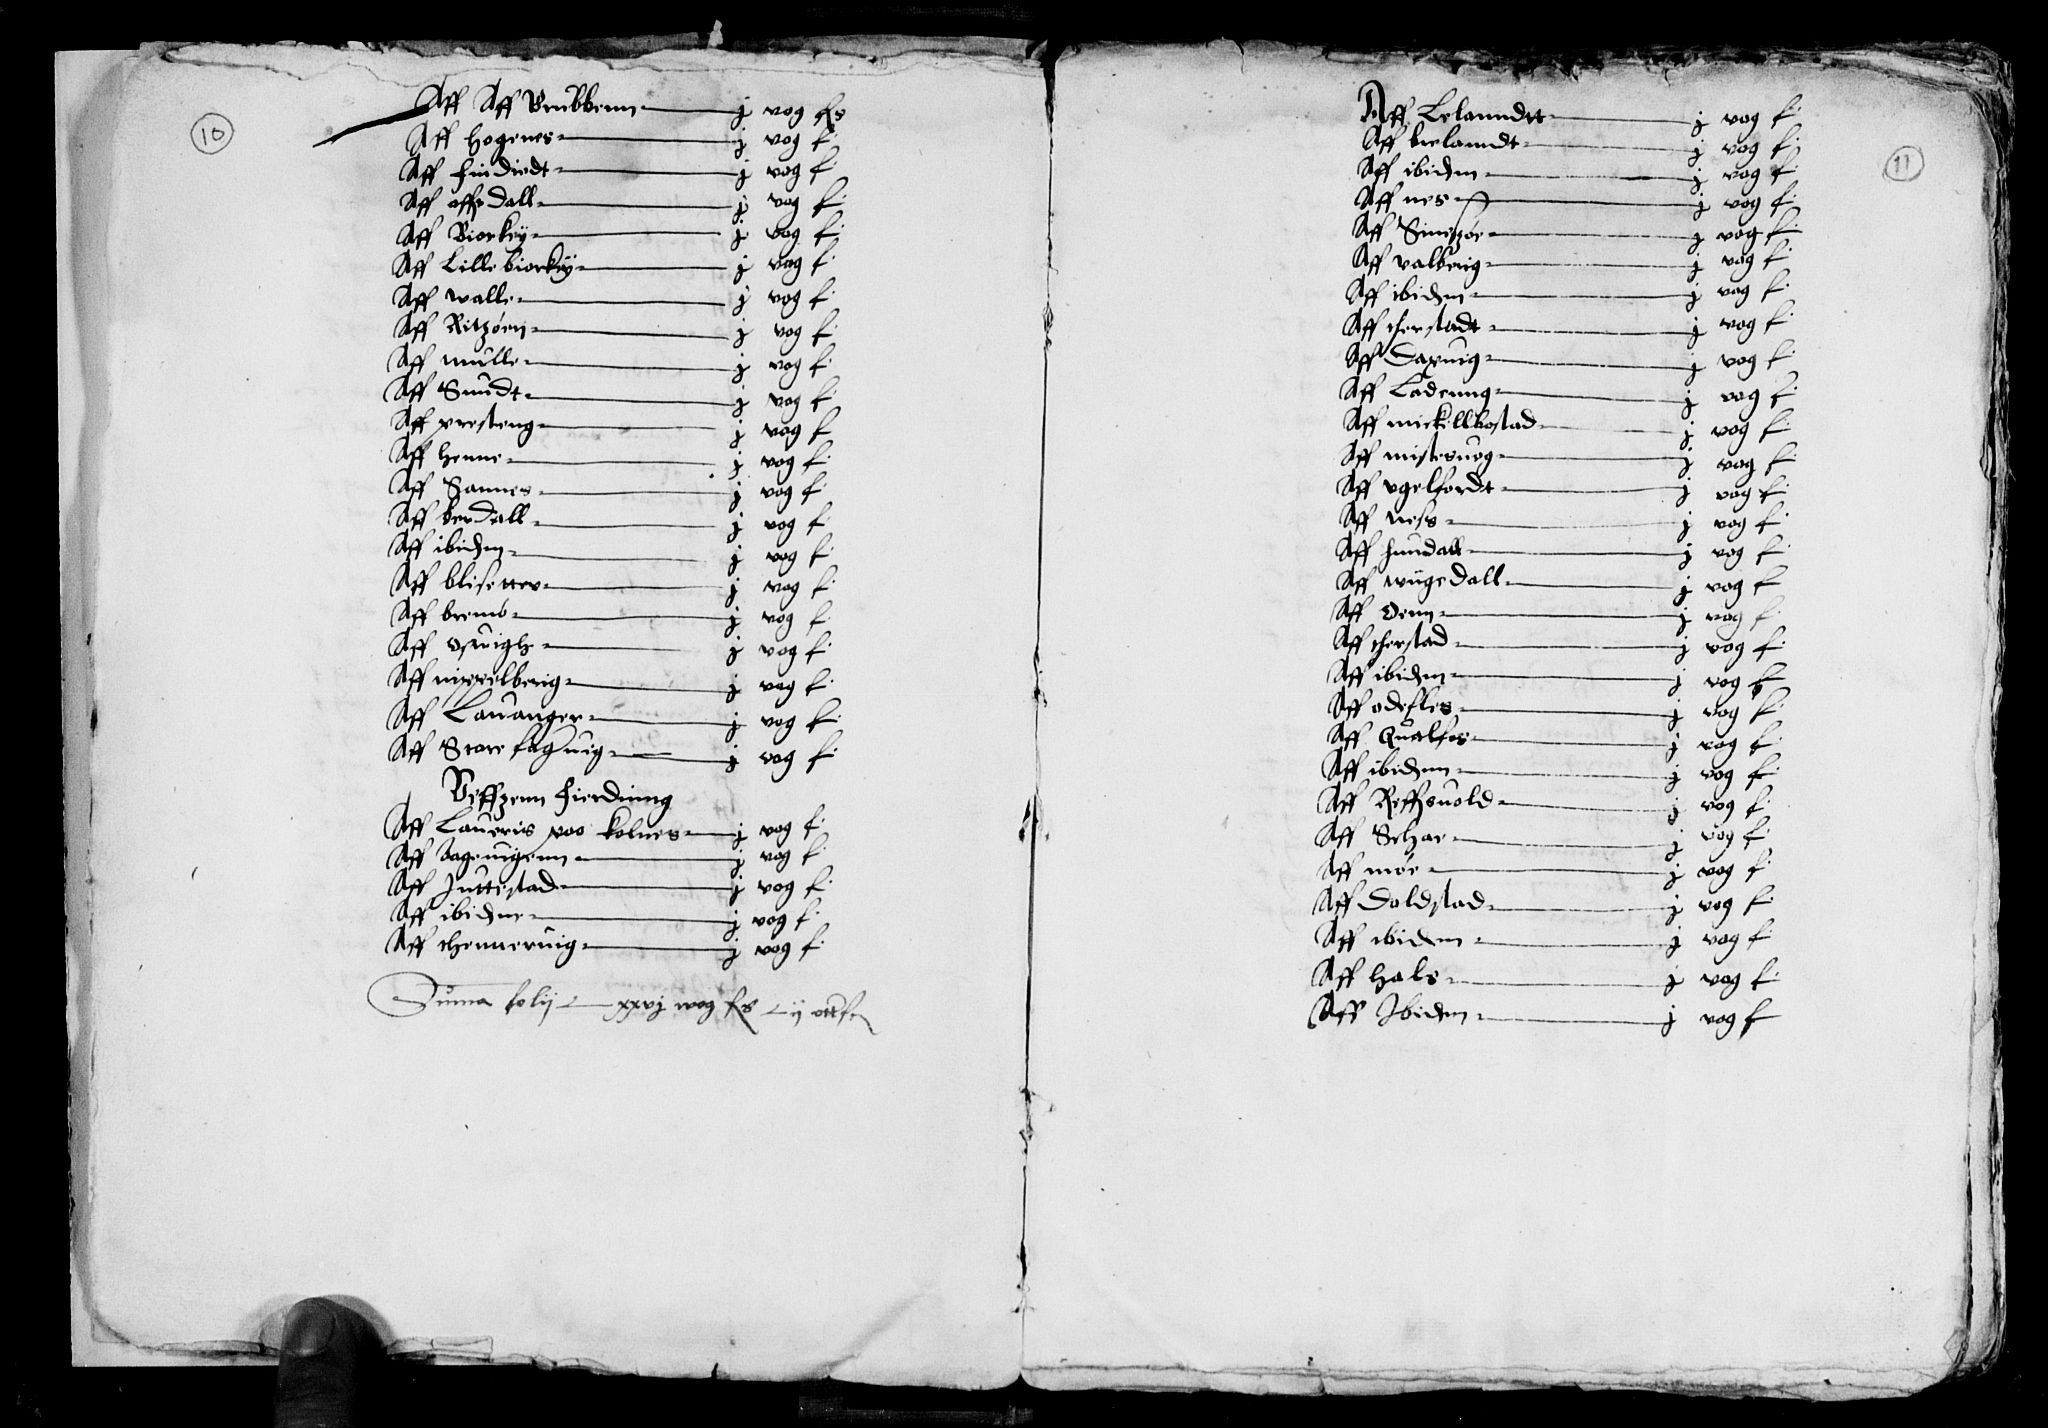 10
Aff Aff Brubbenn j vog fs
Aff Hogenes j vog f
Aff Findiedt j vog f
Aff offrdall j vog f
Aff Biorkøy j vog f
Aff Lille biorkøy j vog f
Aff walle j vog f
Aff Ritzøen j vog f
Aff mulle j vog f
Aff Sundt j vog f
Aff presteng j vog f
Aff henne j vog f
Aff Sannes j vog f
Aff berdall j vog f
Aff ibidm j vog f
Aff blisetter j vog f
Aff bremo j vog f
Aff j vog f
Aff j vog f
Aff Lauanger j vog f
Aff Store j vog f
Veffzenn Fierdinng
Aff Laueris poo kolnes j vog f
Aff Jageuigenn j vog f
Aff Juttestad j vog f
Aff ibidm j vog f
Aff thenneruig j vog f
Suma folij xxvj wog fs ij
11
Aff Lelanndtt j vog f
Aff brelanndt j vog f
Aff ibidm j vog f
Aff nes j vog f
Aff j vog f
Aff valberig j vog f
Aff ibidm j vog f
Aff therstadt j vog f
Aff j vog f
Aff Ladeung j vog f
Aff mickillbostad j vog f
Aff mistesuog j vog f
Aff vgelfordt j vog f
Aff ness j vog f
Aff fundall j vog f
Aff wugedall j vog f
Aff Oenn j vog f
Aff therstad j vog f
Aff ibidm j vog f
Aff odefles j vog f
Aff Qualfos j vog f
Aff ibidm j vog f
Aff Reffzuold j vog f
Aff Schar j vog f
Aff møe j vog f
Aff Doldstad j vog f
Aff ibidm j vog f
Aff Hals j vog f
Aff Ibidm j vog f